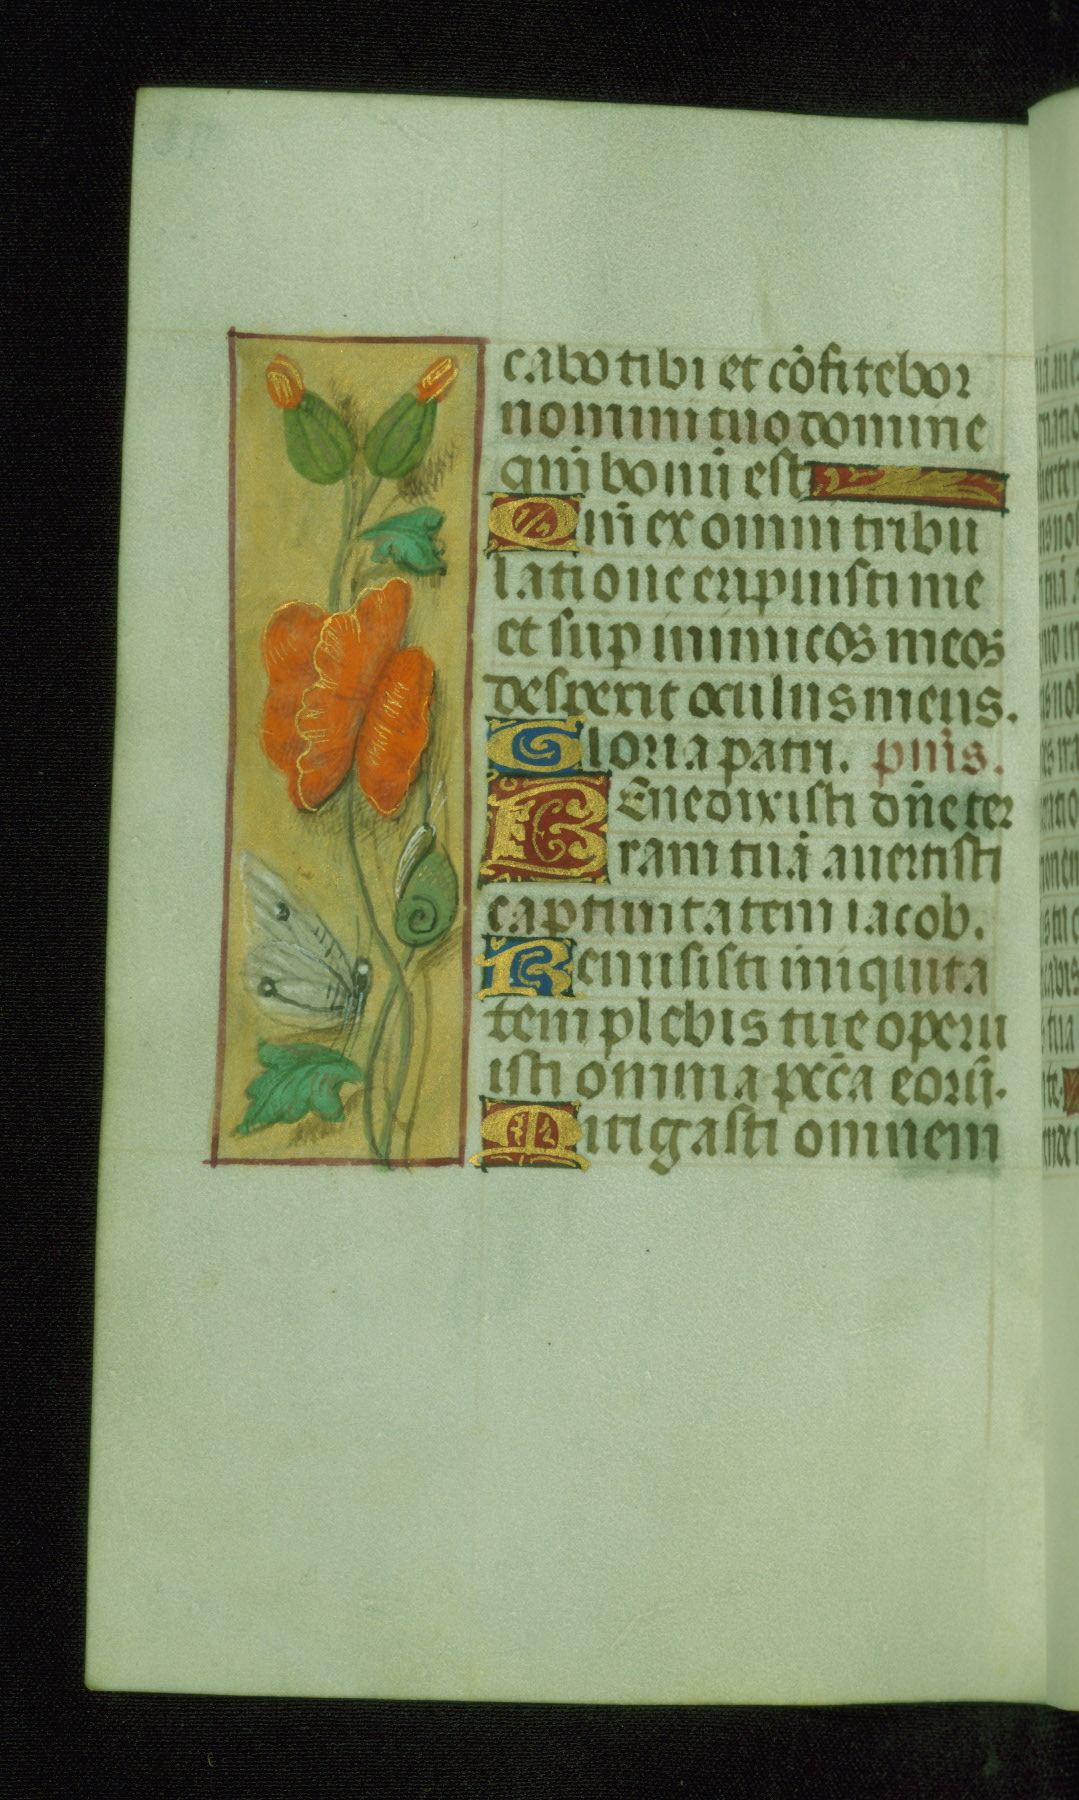 cabo tibi et cōfitebor
nomini tuo domine
qm̄ bonū est
Qm̄ ex omni tribu
latione eripuisti me
et sup inimicos meos
despexit oculus meus.
Gloria patri. p̄us.
BEnedixisti dn̄e ter
ram tuā auertisti
captiuitatem iacob.
Remisisti iniquita
tem plebis tue operu
isti omnia pcc̄a eorū.
Mitigasti omnem